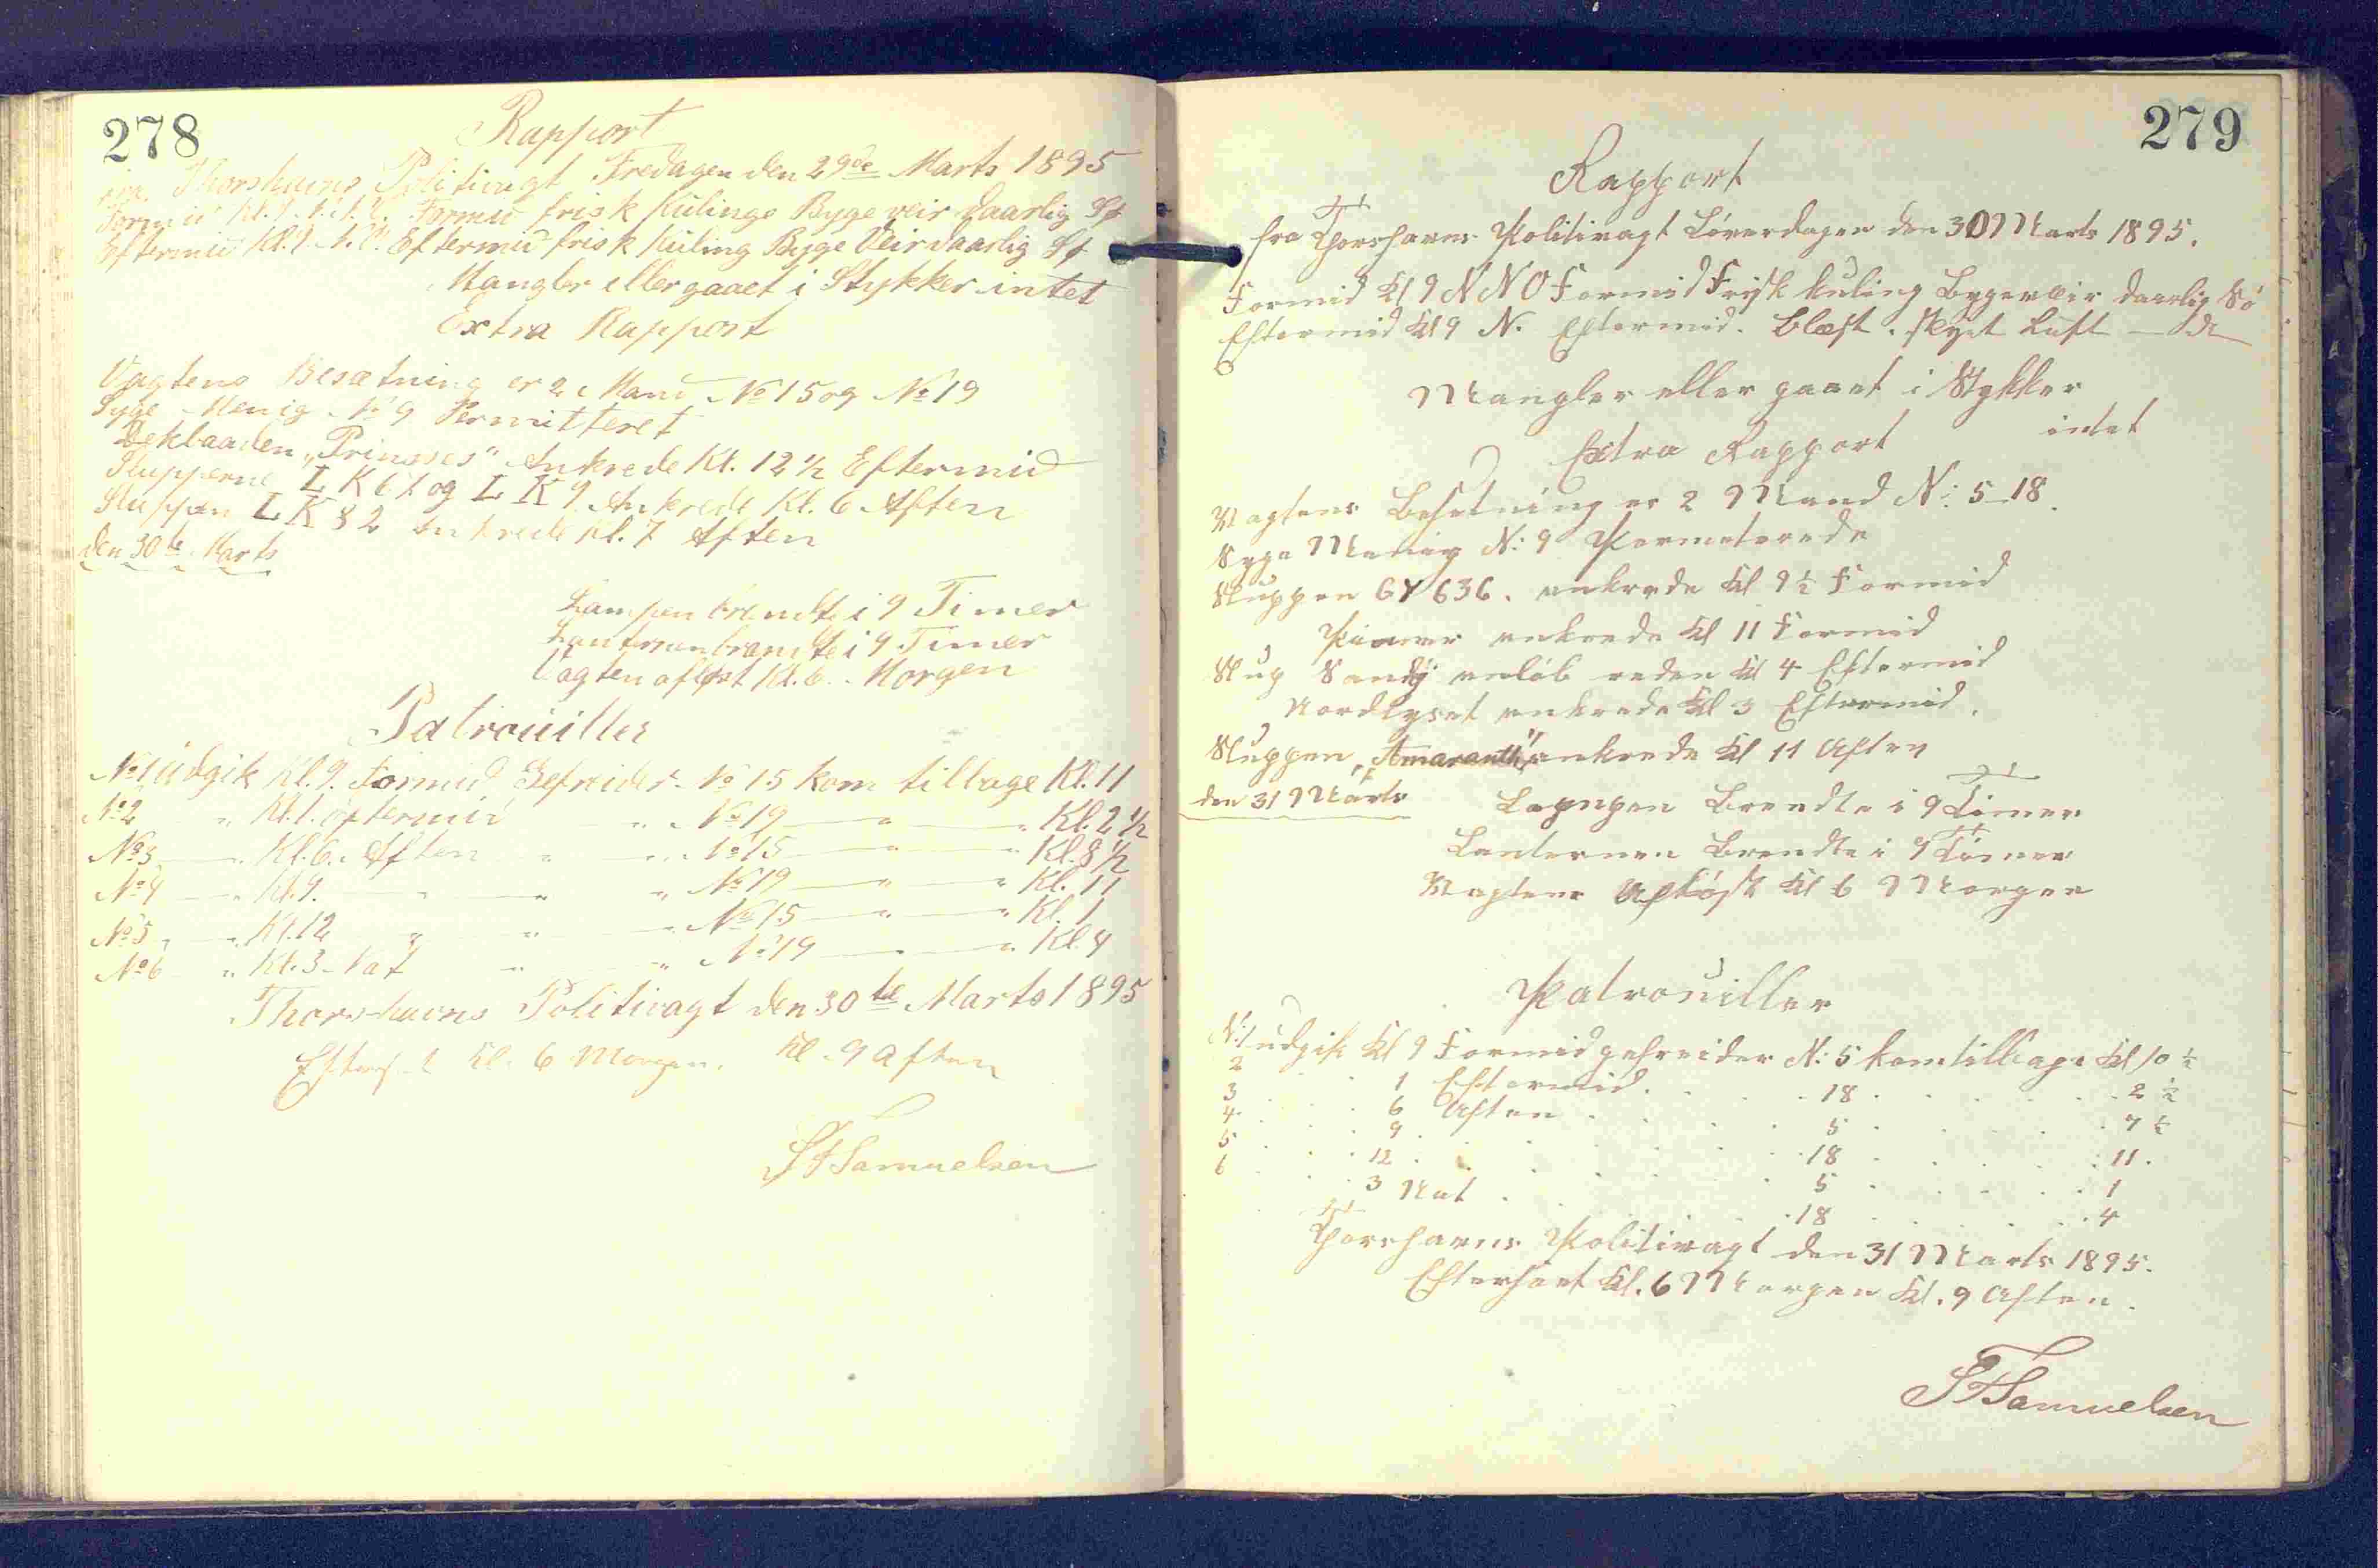 278
Rapport
fra Thorshavns Politivagt Fredagen den 29de Marts 1895
Formid Kl. 9 Formid frisk Kulings Byge veir daarlig Sø
Eftermid Kl. 9 Eftermid frisk Kuling Byge Veir daarlig Sø
Mangler eller gaaet i Stykker intet
Extra Rapport
Vagtens Besætning er 2 Mand No 15 og No 19
Syge Menig No 9 Permitteret
Dekbaaden „Prinses" Ankrede Kl. 12 ½ Eftermid
Slupperne LK 61 og LK 9 Ankrede Kl. 6 Aften
Sluppen LK 82 Ankrede Kl. 7 Aften
den 30te Marts
Lampen brændte i 9 Timer
Lanternen brændte i 9 Timer
Vagten afløst Kl. 6. Morgen
Patrouiller
No 1 udgik Kl. 9. Formid Gefreider No 15 kom tilbage Kl. 11
No 2 „ Kl. 1. eftermid „ No 19 — „ — „ Kl. 2 ½
No 3 — „ Kl. 6. Aften „ „ No 15 — „ — „ Kl. 8 ½
No 4 — „ Kl. 9. „ „ „ No 19 — „ — „ Kl. 11
No 5 „ — „ Kl. 12 „ „ „ No 15 — „ — „ Kl. 1
No 6 „ Kl. 3 Nat „ „ No 19 — „ — „ Kl. 4
Thorshavns Politivagt den 30te Marts 1895
Efterset Kl. 6 Morgen. Kl. 9 Aften
Samuelsen
279
Rapport
fra Thorshavns Politivagt Löverdagen den 30 Marts 1895.
Formid Kl 9 NNO Formid Frisk kuling Bygeveir daarlig Sö
Eftermid Kl 9 N. Eftermid. Blæst. skyet Luft — do
Mangler eller gaaet i Stykker
intet
Extra Rapport
Vagtens Besetning er 2 Mand N: 5 18.
Syge Menig N: 9 Permeterede
Sluppen GY 636. ankrede Kl 9 ½ Formid
ankrede Kl 11 Formid
Slup Sandÿ anløb reden Kl 4 Eftermid
Nordlyset ankrede Kl 3 Eftermid.
Sluppen „Amaranth" ankrede Kl 11 Aften
den 31 Marts
Lampen Brendte i 9 Timer
Lanternen Brendte i 9 Timer
Vagten Afløst Kl 6 Morgen
Patrouiller
N: 1 udgik Kl 9 Formid gefreider N: 5 kom tilbage Kl 10 ½
2 . . 1 Eftermid. . . . 18 . . . . 2 ½
3 . . 6 Aften . . . . 5 . . . . 7 ½
4. . . 9 . . . . . 18 . . . . 11.
5 . . 12 . . . . . 5 . . . . 1
6 . . 3 Nat . . . . 18 . . . . 4
Thorshavns Politivagt den 31 Marts 1895.
Efterseet Kl. 6 Morgen Kl. 9 Aften.
Samuelsen